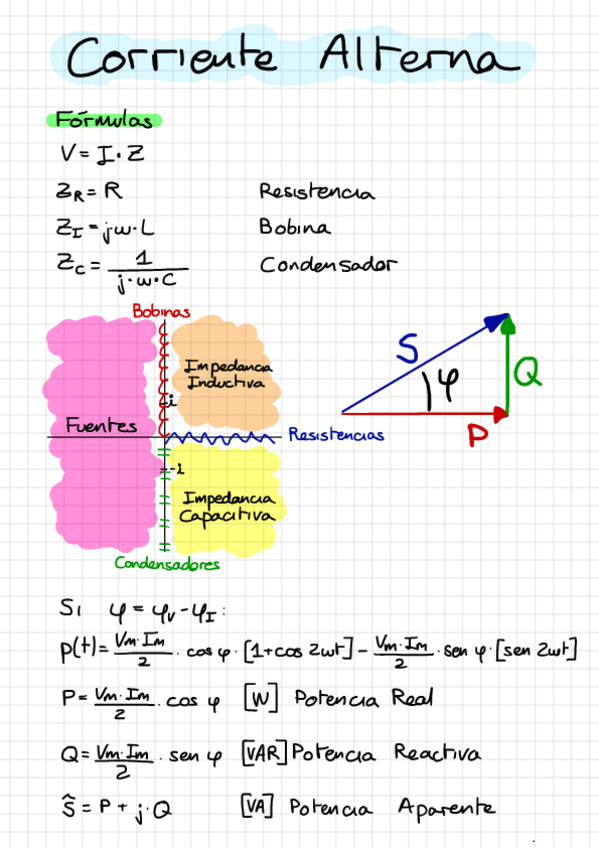 Corriente Alterna
Fórmulas
V = I · Z
Z_R = R Resistencia
Z_I = j·w·L Bobina
Z_C = 1 / (j·w·C) Condensador
Bobinas
Impedancia
Inductiva
i
S
φ
Q
Fuentes
Resistencias
P
-i
Impedancia
Capacitiva
Condensadores
Si φ = φ_V - φ_I :
p(t) = (Vm·Im / 2) · cos φ · [1 + cos 2wt] - (Vm·Im / 2) · sen φ · [sen 2wt]
P = (Vm·Im / 2) · cos φ [W] Potencia Real
Q = (Vm·Im / 2) · sen φ [VAR] Potencia Reactiva
Ŝ = P + j·Q [VA] Potencia Aparente